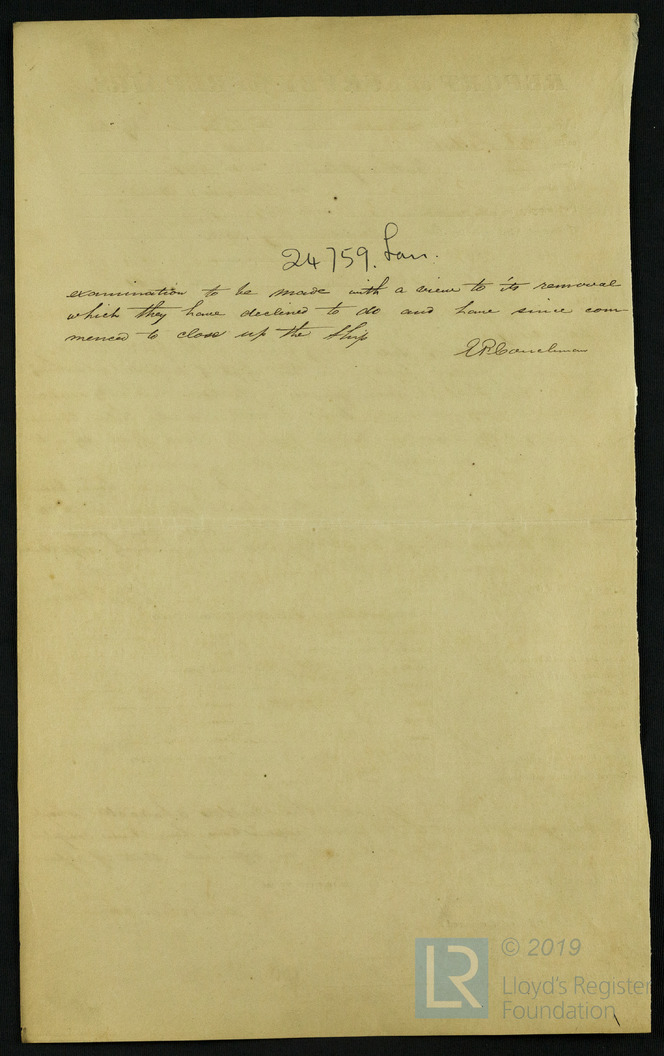 24759. Lon.
examination to be made with a view to its removal
which they have declined to do and have since com-
menced to close up the Ship
Couchman
LR
© 2019
Lloyd's Register
Foundation